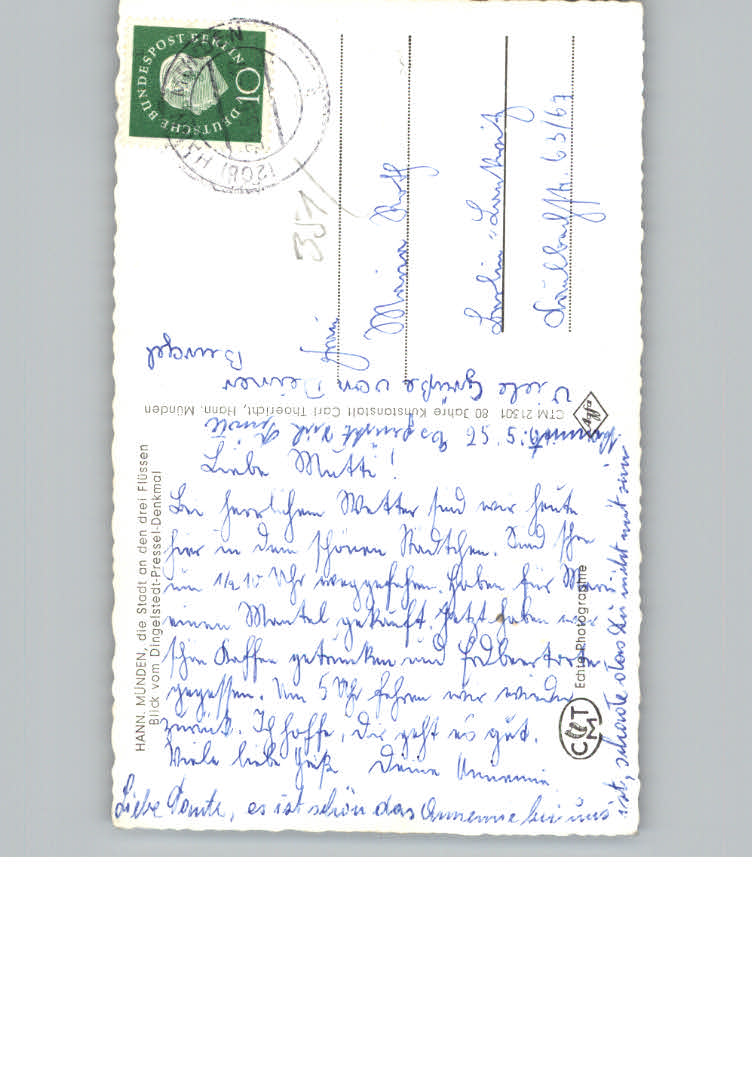 HANN. MÜNDEN, die Stadt an den drei Flüssen
Blick vom Dingelstedt-Pressel-Denkmal
Liebe Mutti!
Bei herrlichem Wetter sind wir heute
hier in dem schönen Städtchen. Sind schon
um 1/2 10 Uhr weggefahren. Haben für
einen Mantel gekauft. Jetzt haben wir
schön Kaffee getrunken und Erdbeertorte
gegessen. Um 5 Uhr fahren wir wieder
zurück. Ich hoffe, Dir geht es gut.
Viele liebe Grüße Deine Annemie
Liebe Tante, es ist schön das Annemie bei uns
ist, schade das Du nicht mit
Es grüßt Dich
Viele Grüße von Deiner
CTM 21301 80 Jahre Kunstanstalt Carl Thoericht, Hann. Münden
Agfa
Echte Photographie
CTM
DEUTSCHE BUNDESPOST BERLIN
10
(20b) H
MÜNDEN
351
Frau
Maria
Berlin-Lankwitz
63/67